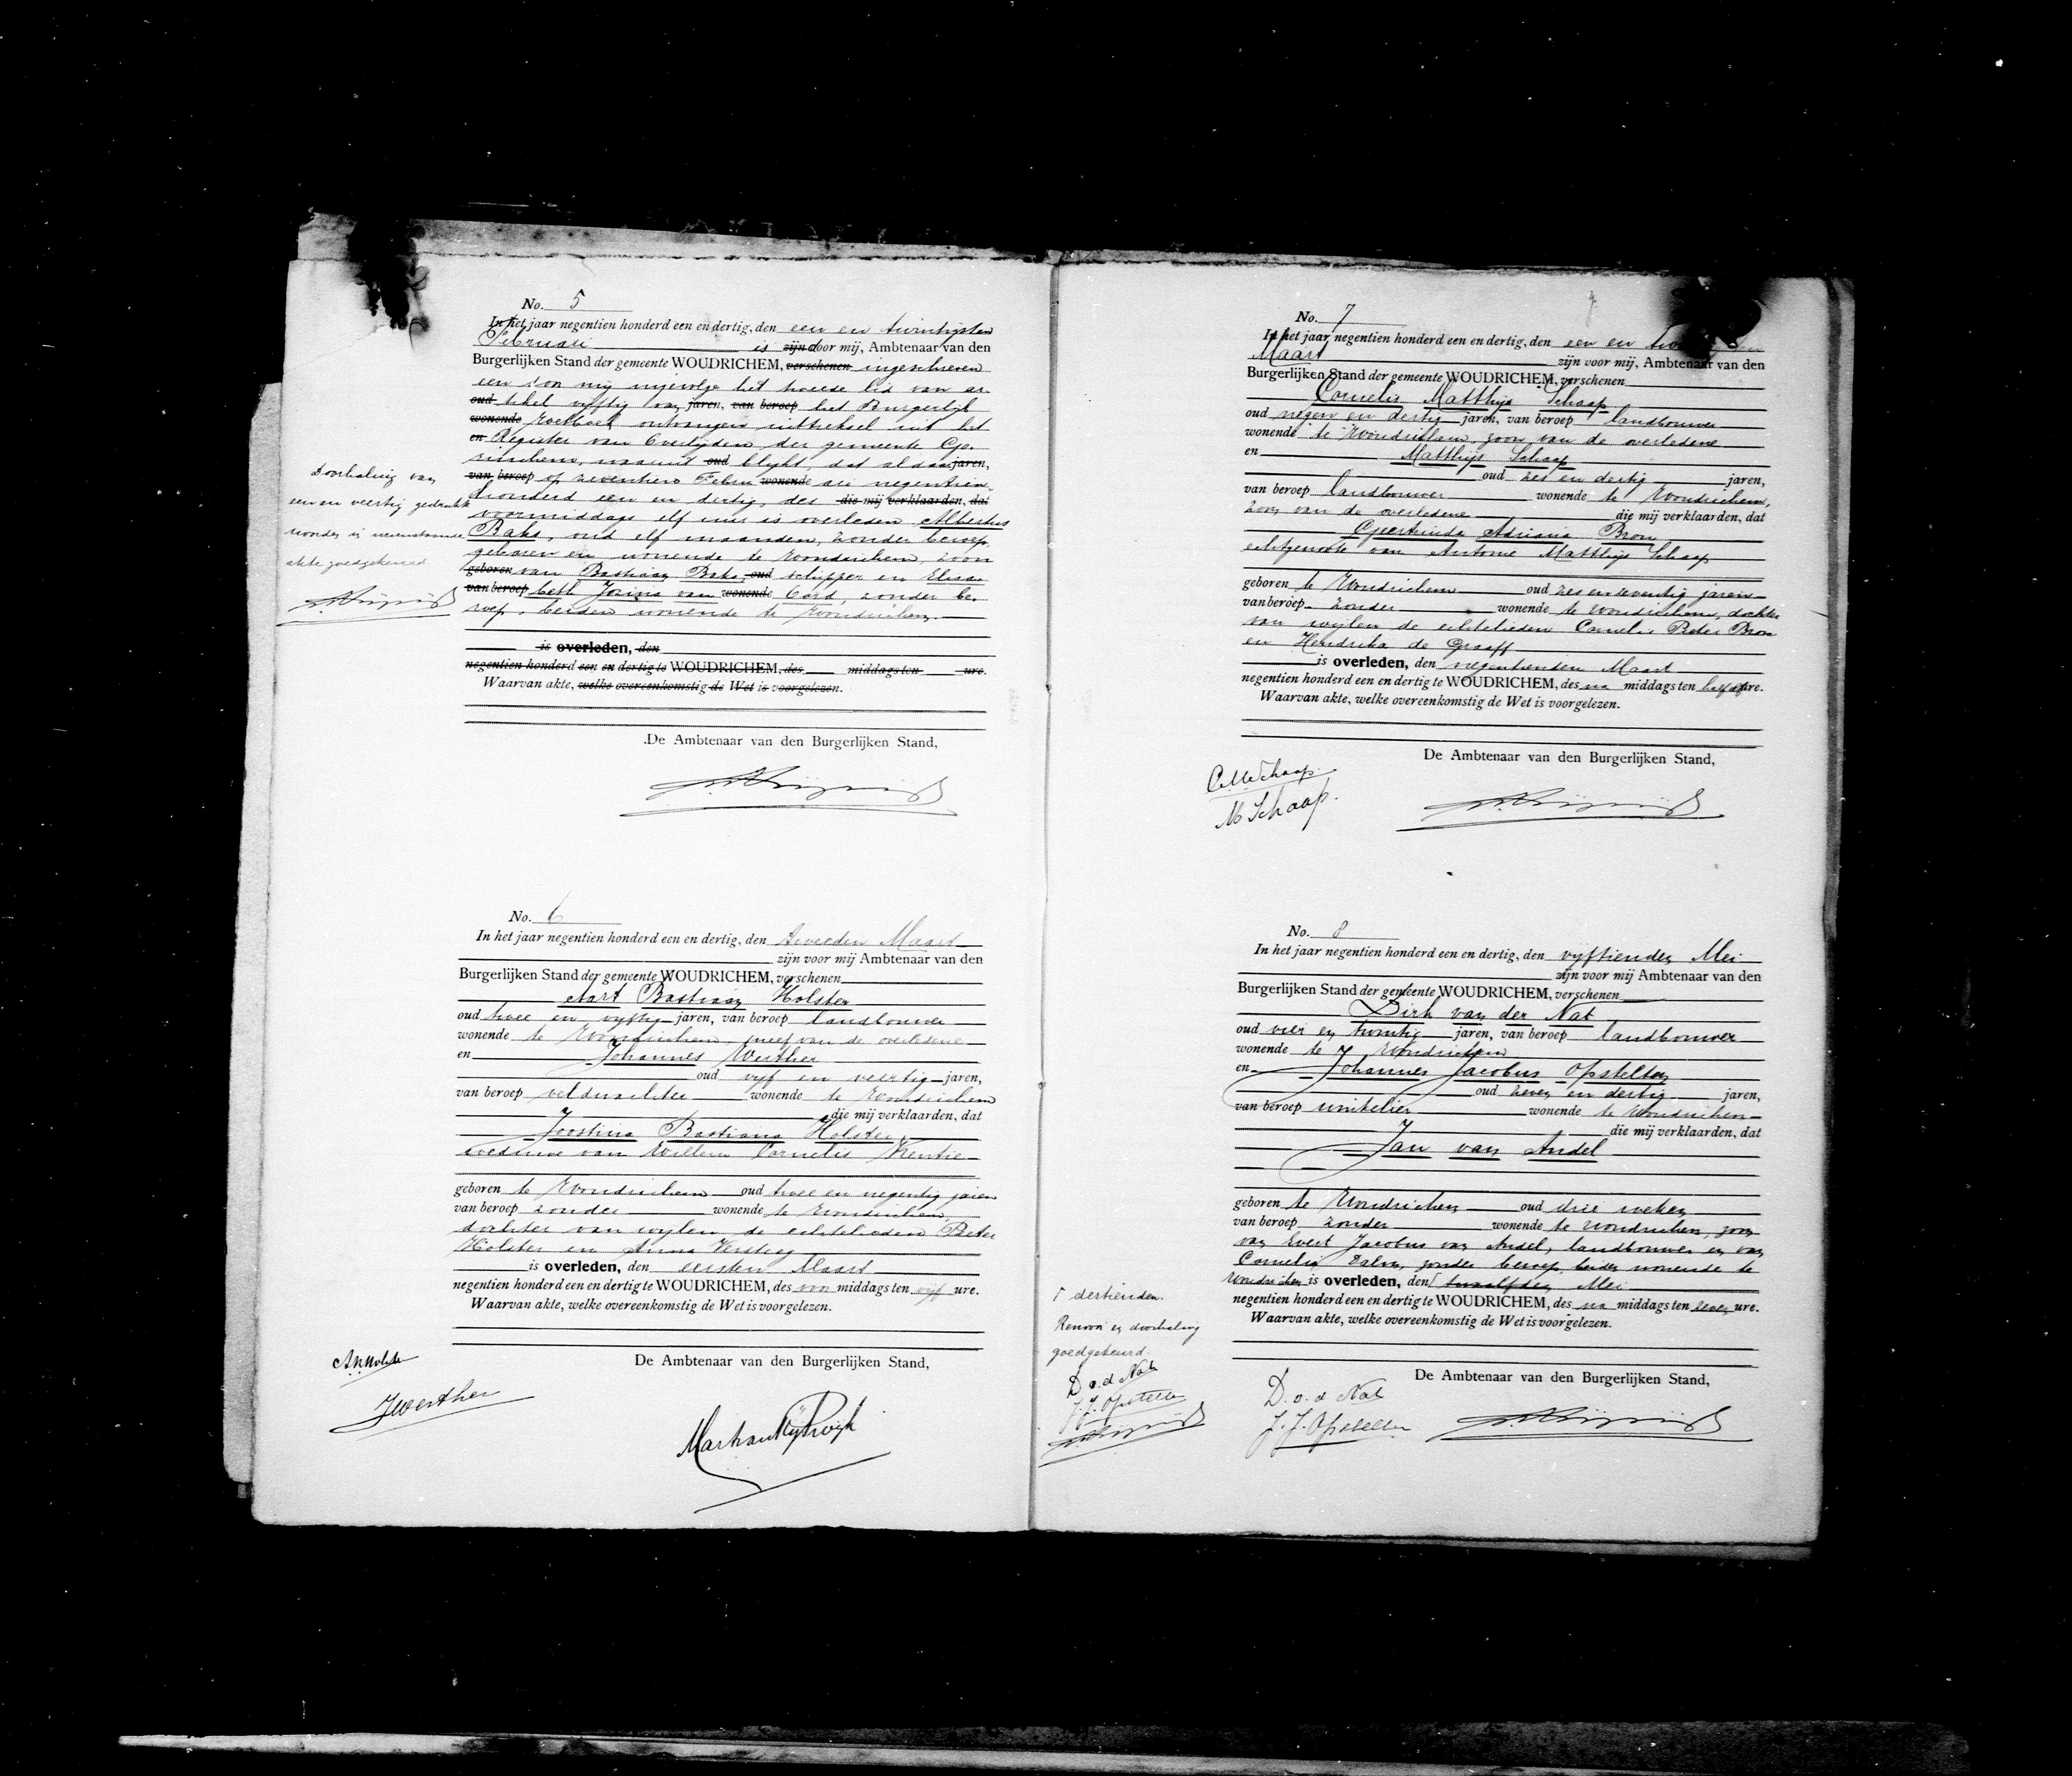 No. 5
In het jaar negentien honderd een en dertig, den een en twintigsten
Februari is zijn door mij, Ambtenaar van den
Burgerlijken Stand der gemeente WOUDRICHEM, verschenen ingeschreven
een door mij ingevolge het tweede lid van ar
oud tikel vijftig van jaren, van beroep het Burgerlijk
wonende Wetboek ontvangen uittreksel uit het
en Register van Overlijden der gemeente Go-
rinchem, waaruit oud blijkt, dat aldaar jaren,
van beroep op zeventien Febru wonende ari negentien
honderd een en dertig, des die mij verklaarden, dat
voormiddags elf uur is overleden Albertus
Baks, oud elf maanden, zonder beroep,
geboren en wonende te Woudrichem, zoon
geboren van Bastiaan Baks oud schipper en Elisa-
van beroep beth Jozina van wonende Oord, zonder be-
roep, beiden wonende te Woudrichem.
is overleden, den
negentien honderd een en dertig te WOUDRICHEM, des middags ten ure.
Waarvan akte, welke overeenkomstig de Wet is voorgelezen.
De Ambtenaar van den Burgerlijken Stand,
Doorhaling van
een en veertig gedrukte
woorden in nevenstaande
akte goedgekeurd
No. 6
In het jaar negentien honderd een en dertig, den tweeden Maart
zijn voor mij Ambtenaar van den
Burgerlijken Stand der gemeente WOUDRICHEM, verschenen
Aart Bastiaan Holster
oud twee en vijftig jaren, van beroep landbouwer
wonende te Woudrichem neef van de overledene
en Johannes Werther
oud vijf en veertig jaren,
van beroep veldwachter wonende te Woudrichem
die mij verklaarden, dat
Joostina Bastiana Holster,
weduwe van Willem Cornelis Krentie
geboren te Woudrichem oud twee en negentig jaren
van beroep zonder wonende te Woudrichem,
dochter van wijlen de echtelieden Peter
Holster en Anna Versteeg
is overleden, den eersten Maart
negentien honderd een en dertig te WOUDRICHEM, des voor middags ten vijf ure.
Waarvan akte, welke overeenkomstig de Wet is voorgelezen.
De Ambtenaar van den Burgerlijken Stand,
JWerther
No. 7
In het jaar negentien honderd een en dertig, den een en
Maart zijn voor mij, Ambtenaar van den
Burgerlijken Stand der gemeente WOUDRICHEM, verschenen
Cornelis Matthijs Schaap
oud negen en dertig jaren, van beroep landbouwer
wonende te Woudrichem, zoon van de overledene
en Matthijs Schaap
oud zes en dertig jaren,
van beroep landbouwer wonende te Woudrichem,
zoon van de overledene die mij verklaarden, dat
Geertruida Adriana Bron
echtgenoote van Antonie Matthijs Schaap
geboren te Woudrichem oud zes en zeventig jaren
van beroep zonder wonende te Woudrichem, dochter
van wijlen de echtelieden Cornelis Pieter Bron
en Hendrika de Graaff
is overleden, den negentienden Maart
negentien honderd een en dertig te WOUDRICHEM, des na middags ten half ure.
Waarvan akte, welke overeenkomstig de Wet is voorgelezen.
De Ambtenaar van den Burgerlijken Stand,
C.M. Schaap
M Schaap.
No. 8
In het jaar negentien honderd een en dertig, den vijftienden Mei
zijn voor mij Ambtenaar van den
Burgerlijken Stand der gemeente WOUDRICHEM, verschenen
Dirk van der Nat
oud vier en twintig jaren, van beroep landbouwer
wonende te Woudrichem
en Johannes Jacobus Opstelten
oud zeven en dertig jaren,
van beroep winkelier wonende te Woudrichem
die mij verklaarden, dat
Jan van Andel
geboren te Woudrichem oud drie weken
van beroep zonder wonende te Woudrichem, zoon
van Evert Jacobus van Andel, landbouwer en van
Cornelia Dalm, zonder beroep, beiden wonende te
Woudrichem is overleden, den twaalfden Mei
negentien honderd een en dertig te WOUDRICHEM, des na middags ten zeven ure.
Waarvan akte, welke overeenkomstig de Wet is voorgelezen.
De Ambtenaar van den Burgerlijken Stand,
D v. d Nat
J. J. Opstelten
Γ dertienden.
Renvooi en doorhaling
goedgekeurd.
D v. d Nat
J. J. Opstelten